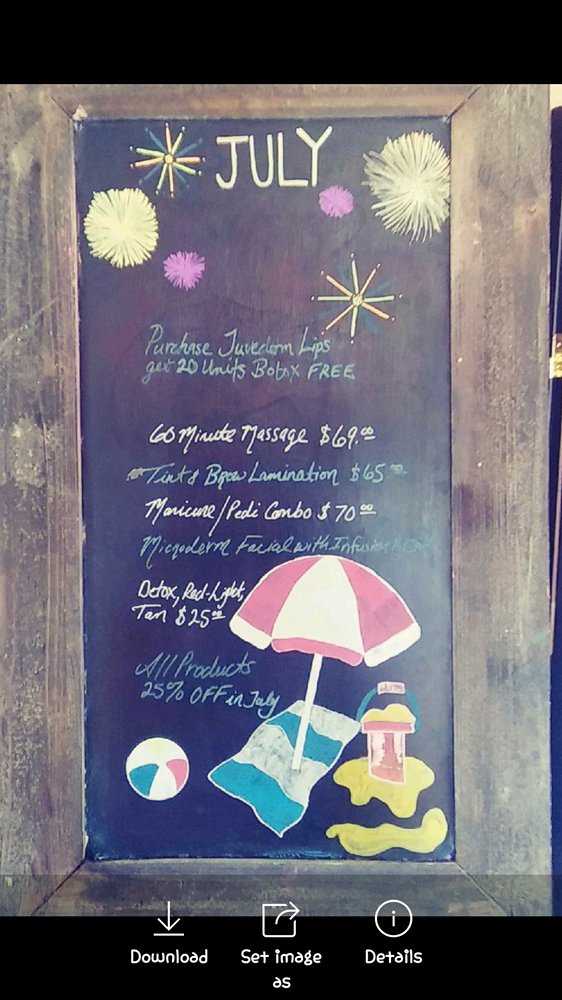 JULY
Purchase Juvederm Lips
get 20 Units Botox FREE
60 Minute Massage $69.00
Tint & Brow Lamination $65.00
Manicure/Pedi Combo $70.00
Microderm Facial with Infusion
Detox, Red-Light,
Tan $25.00
All Products
25% OFF in July
Download
Set image
as
Details